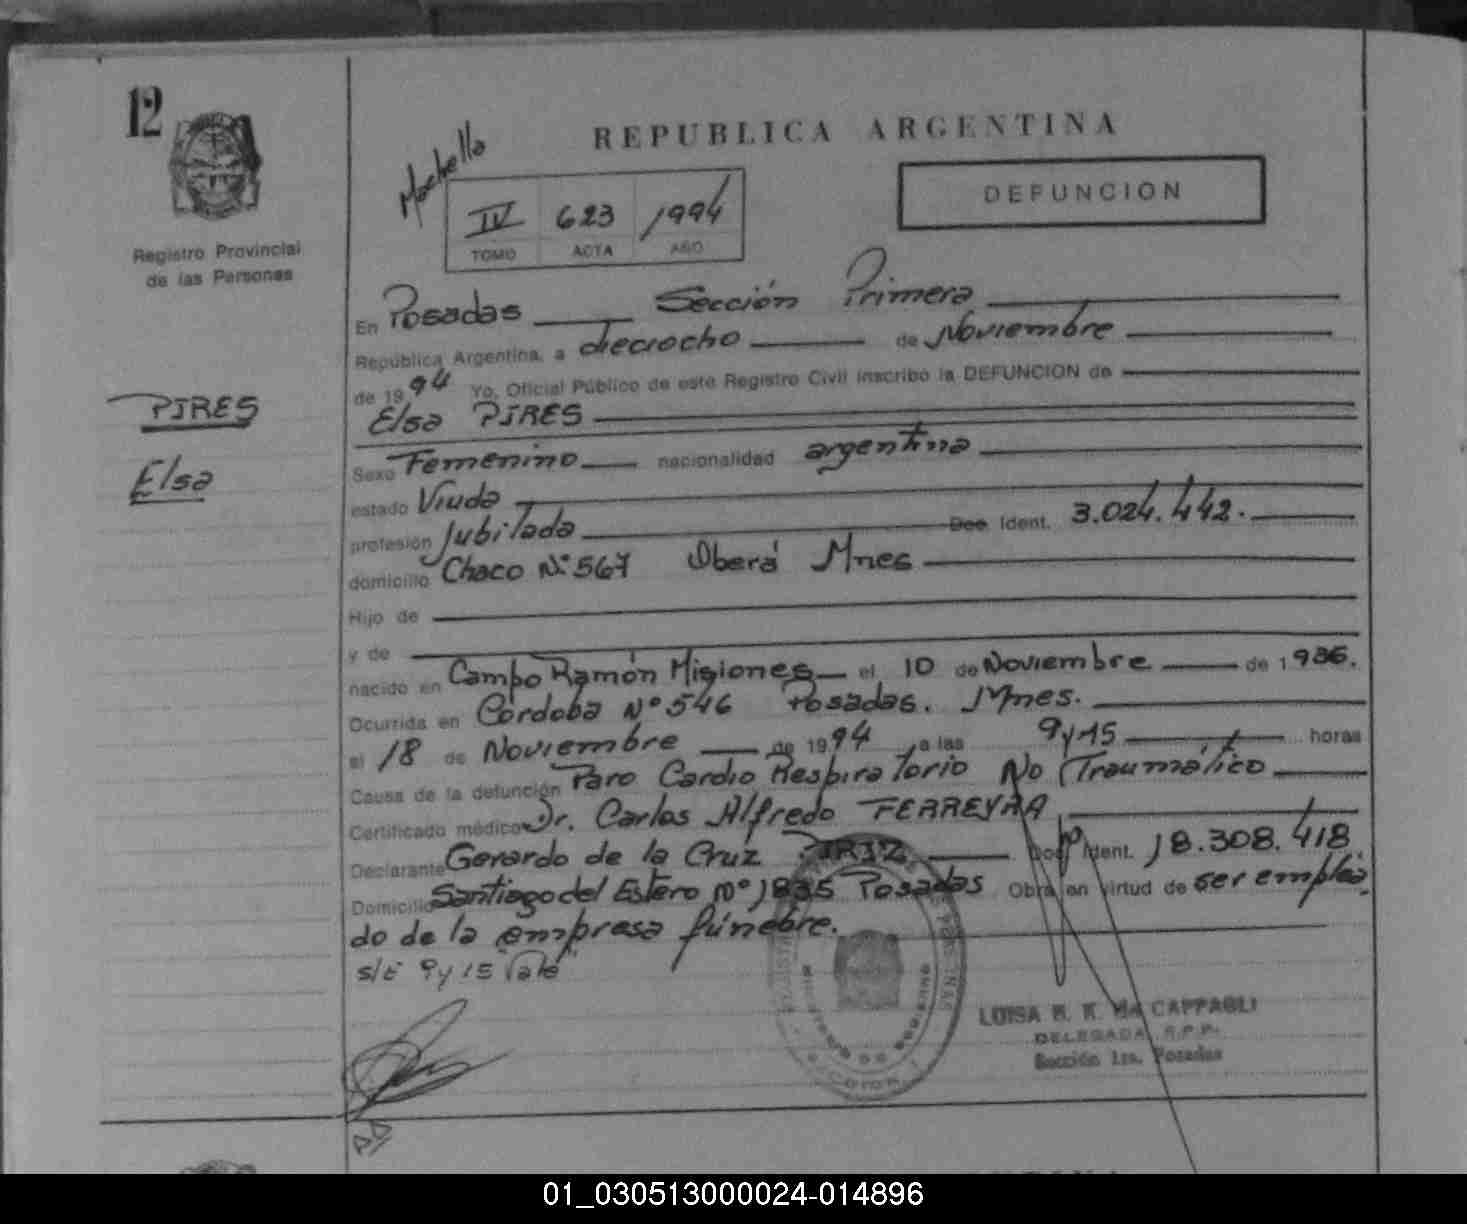 12
REPUBLICA ARGENTINA
Registro Provincial
de las Personas
IV 623 1994
TOMO ACTA AÑO
DEFUNCION
PIRES
Elsa
En Posadas Sección Primera
República Argentina, a dieciocho de Noviembre
de 19 94 Yo, Oficial Público de este Registro Civil inscribo la DEFUNCION de
Elsa PIRES
Sexo Femenino nacionalidad argentina
estado Viuda
profesión Jubilada Doc Ident. 3.024.442.
domicilio Chaco Nº 567 Oberá Mnes
Hijo de
y de
nacido en Campo Ramón Misiones el 10 de Noviembre de 1936.
Ocurrida en Córdoba Nº 546 Posadas. Mnes.
el 18 de Noviembre de 1994 a las 9 y 15 horas
Causa de la defunción Paro Cardio Respiratorio No Traumático
Certificado médico Dr. Carlos Alfredo FERREYRA
Declarante Gerardo de la Cruz Doc Ident. 18.308.418
Domicilio Santiago del Estero Nº 1835 Posadas Obra en virtud de ser emplea
do de la empresa fúnebre.
s/é 9 y 15 Vale
LUISA CAPPAGLI
DELEGADA R.P.P.
Sección 1ra. Posadas
01_030513000024-014896